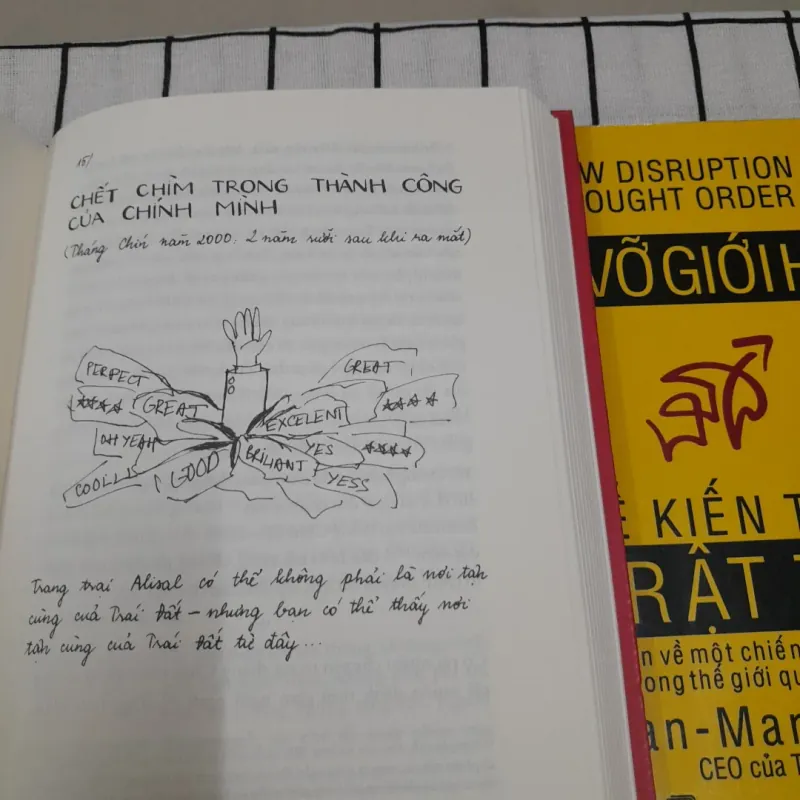 15/
CHẾT CHÌM TRONG THÀNH CÔNG
CỦA CHÍNH MÌNH
(Tháng Chín năm 2000: 2 năm rưỡi sau khi ra mắt)
PERFECT
★★★★
GREAT
OH YEAH
COOL!!
GOOD
GREAT
★★★★
EXCELENT
YES
★★★★
BRILIANT
YESS
Trang trại Alisal có thể không phải là nơi tận
cùng của Trái Đất – nhưng bạn có thể thấy nơi
tận cùng của Trái Đất từ đây...
W DISRUPTION
OUGHT ORDER
VỠ GIỚI H
KIẾN T
RẬT T
n về một chiến
ong thế giới qu
an-Mar
CEO của T